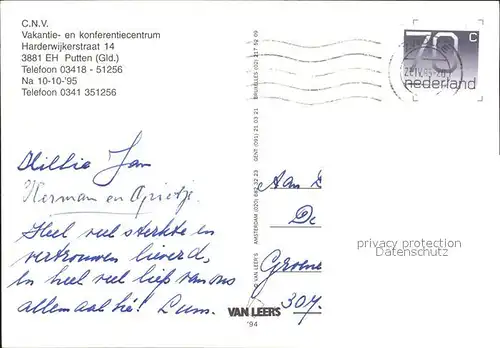 C.N.V.
Vakantie- en konferentiecentrum
Harderwijkerstraat 14
3881 EH Putten (Gld.)
Telefoon 03418 - 51256
Na 10-10-'95
Telefoon 0341 351256
Jan
Herman en
Heel veel sterkte en
vertrouwen lieverd,
en heel veel liefs van ons
allemaal hé!
BRUXELLES (02) 217 52 69
GENT (091) 21 03 21
AMSTERDAM (020) 682 32 23
© VAN LEER'S
VAN LEERS
'94
70 c
nederland
Aan
De
Groene
307.
privacy protection
Datenschutz